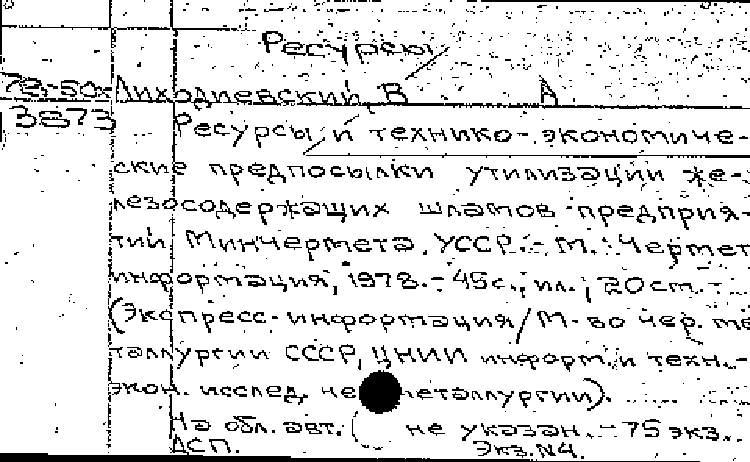 Ресурсы
78-50х Лиходиевский, В А
3873 Ресурсы и технико-экономиче-
ские предпосылки утилизации же-
лезосодержащих шламов предприя-
тий Минчермета УССР.- М.: Чермет
информация, 1978.- 45с., ил.; 20см.-
(Экспресс-информация/М-во чер. ме
таллургии СССР, ЦНИИ информ. и техн.-
экон. исслед. металлургии).
На обл. авт. не указан.- 75экз.
ДСП. Экз.N4.